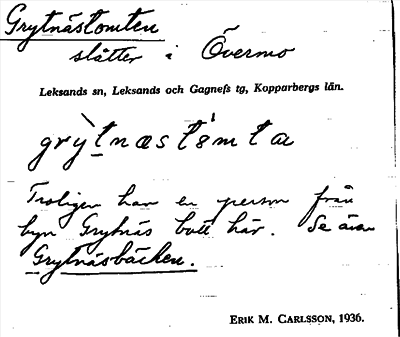 Grytnästomten
slåtter i Övermo
Leksands sn, Leksands och Gagnefs tg, Kopparbergs län.
grỳtnæstȯmta
Troligen har en person från
byn Grytnäs bott här. Se även
Grytnäsbäcken.
ERIK M. CARLSSON, 1936.